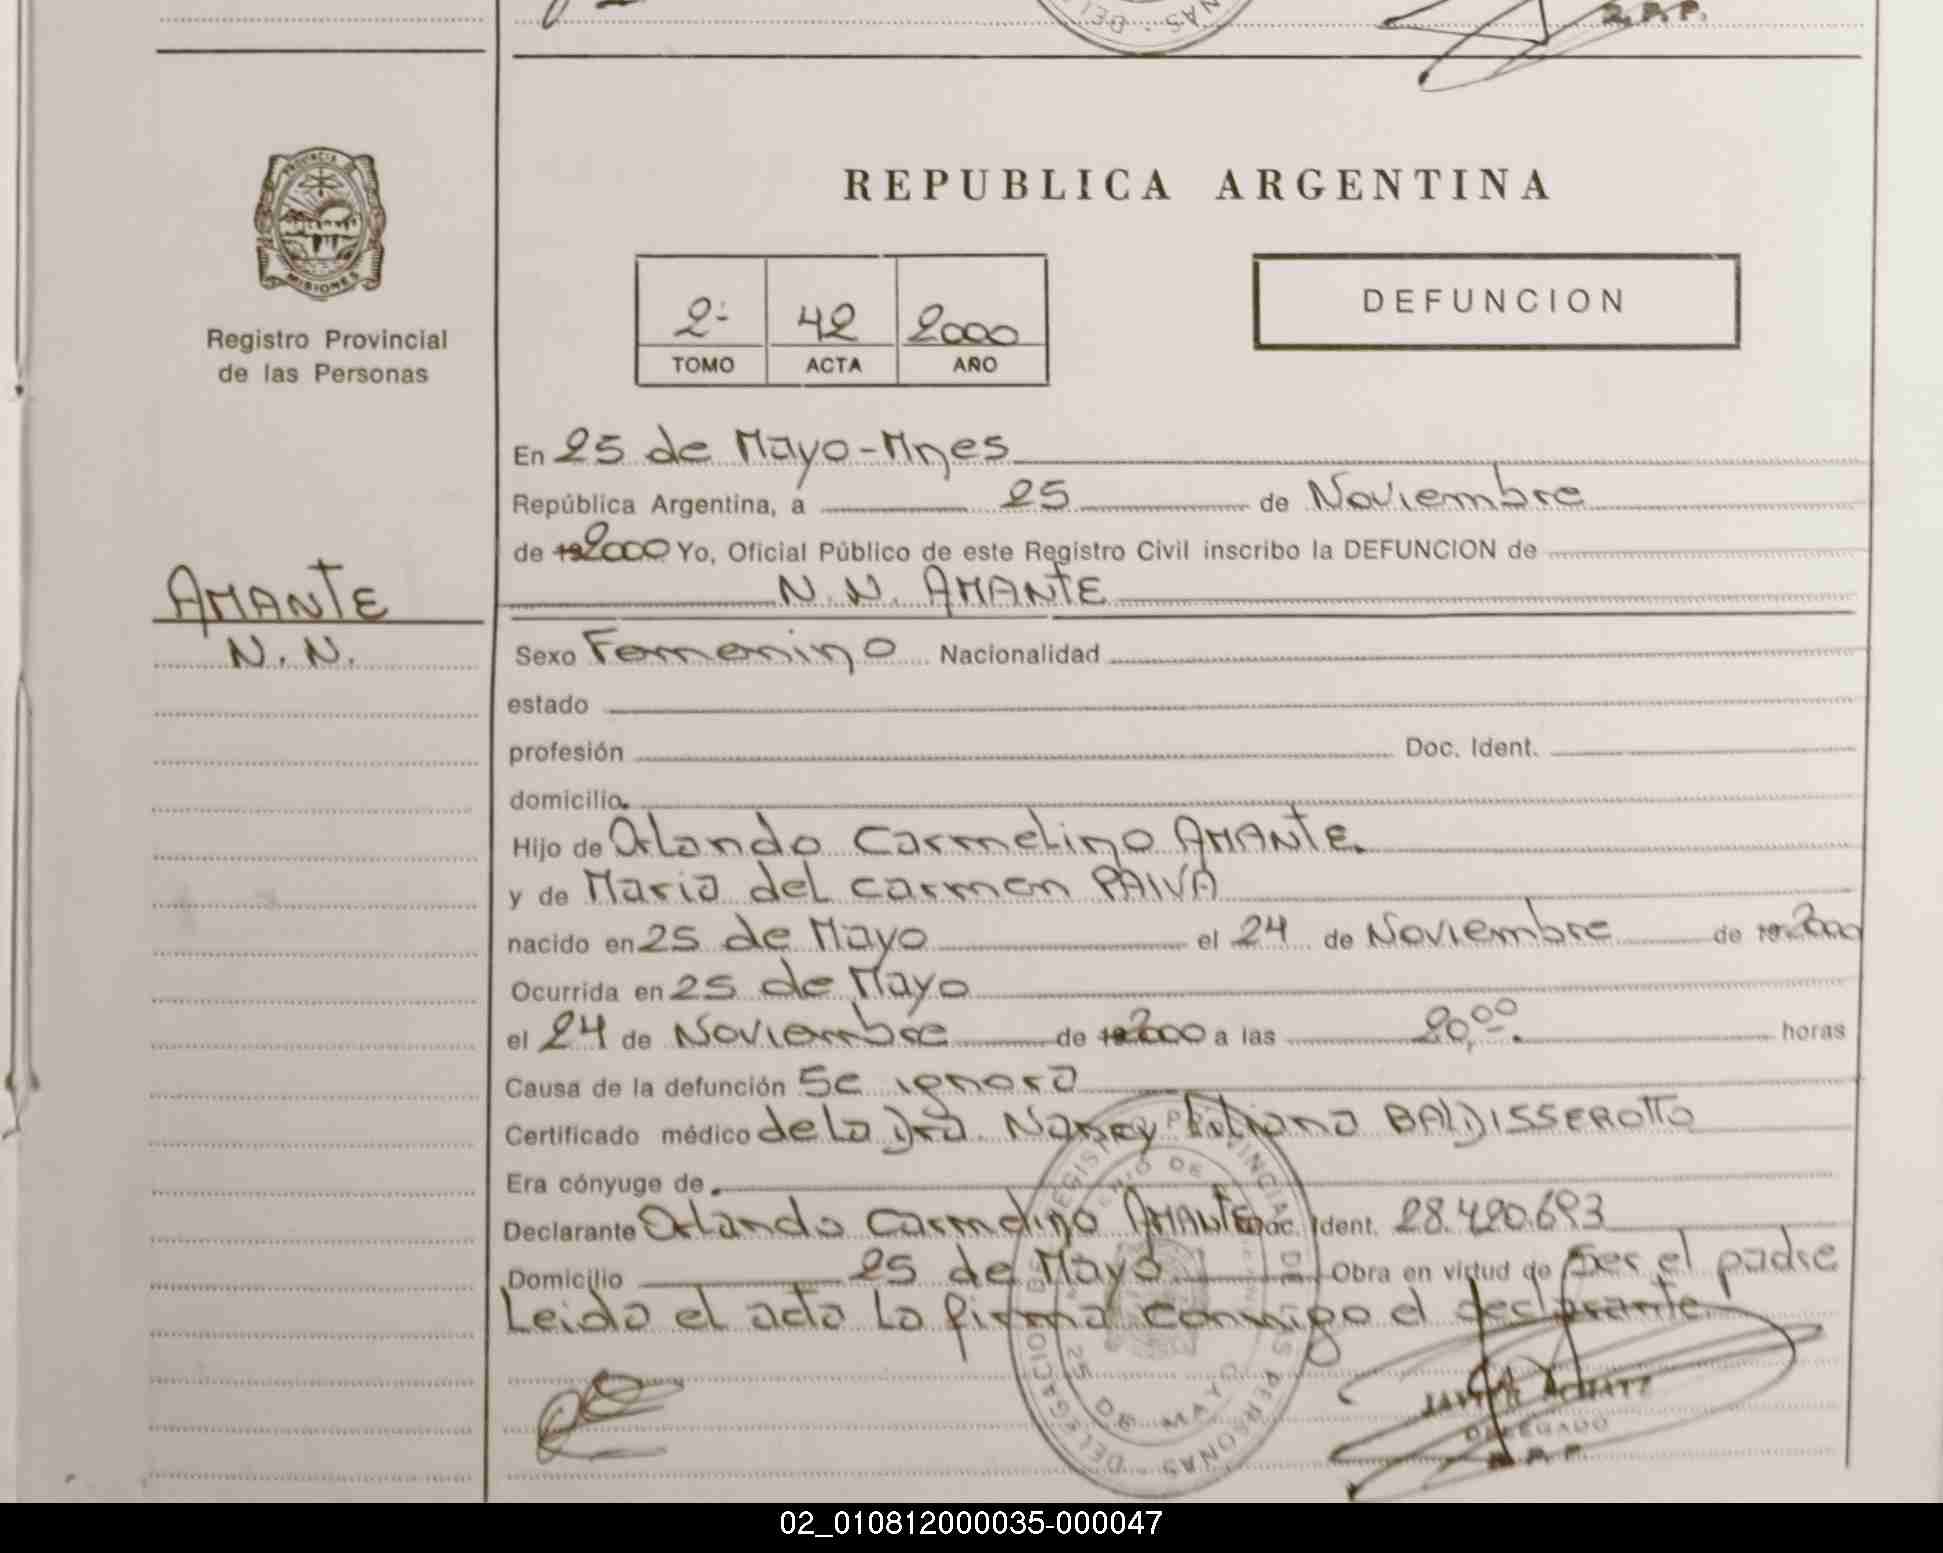 R. P. P.
PROVINCIA DE
MISIONES
Registro Provincial
de las Personas
REPUBLICA ARGENTINA
2- 42 2000
TOMO ACTA AÑO
DEFUNCION
En 25 de Mayo-Mnes
República Argentina, a 25 de Noviembre
de 19 2000 Yo, Oficial Público de este Registro Civil inscribo la DEFUNCION de
N. N. AMANTE
AMANTE
N. N.
Sexo Femenino Nacionalidad
estado
profesión Doc. Ident.
domicilio
Hijo de Orlando Carmelino AMANTE.
y de Maria del carmen PAIVA
nacido en 25 de Mayo el 24 de Noviembre de 19 2000
Ocurrida en 25 de Mayo
el 24 de Noviembre de 19 2000 a las 20,00. horas
Causa de la defunción Se ignora
Certificado médico de la Dra. Nancy Liliana BALDISSEROTTO
Era cónyuge de
Declarante Orlando Carmelino AMANTE Doc. Ident. 28.420.693
Domicilio 25 de Mayo Obra en virtud de ser el padre
Leida el acta la firma conmigo el declarante
REGISTRO PROVINCIAL DE LAS PERSONAS - DELEGACION
25 DE MAYO
DELEGADO
R. P. P.
02_010812000035-000047